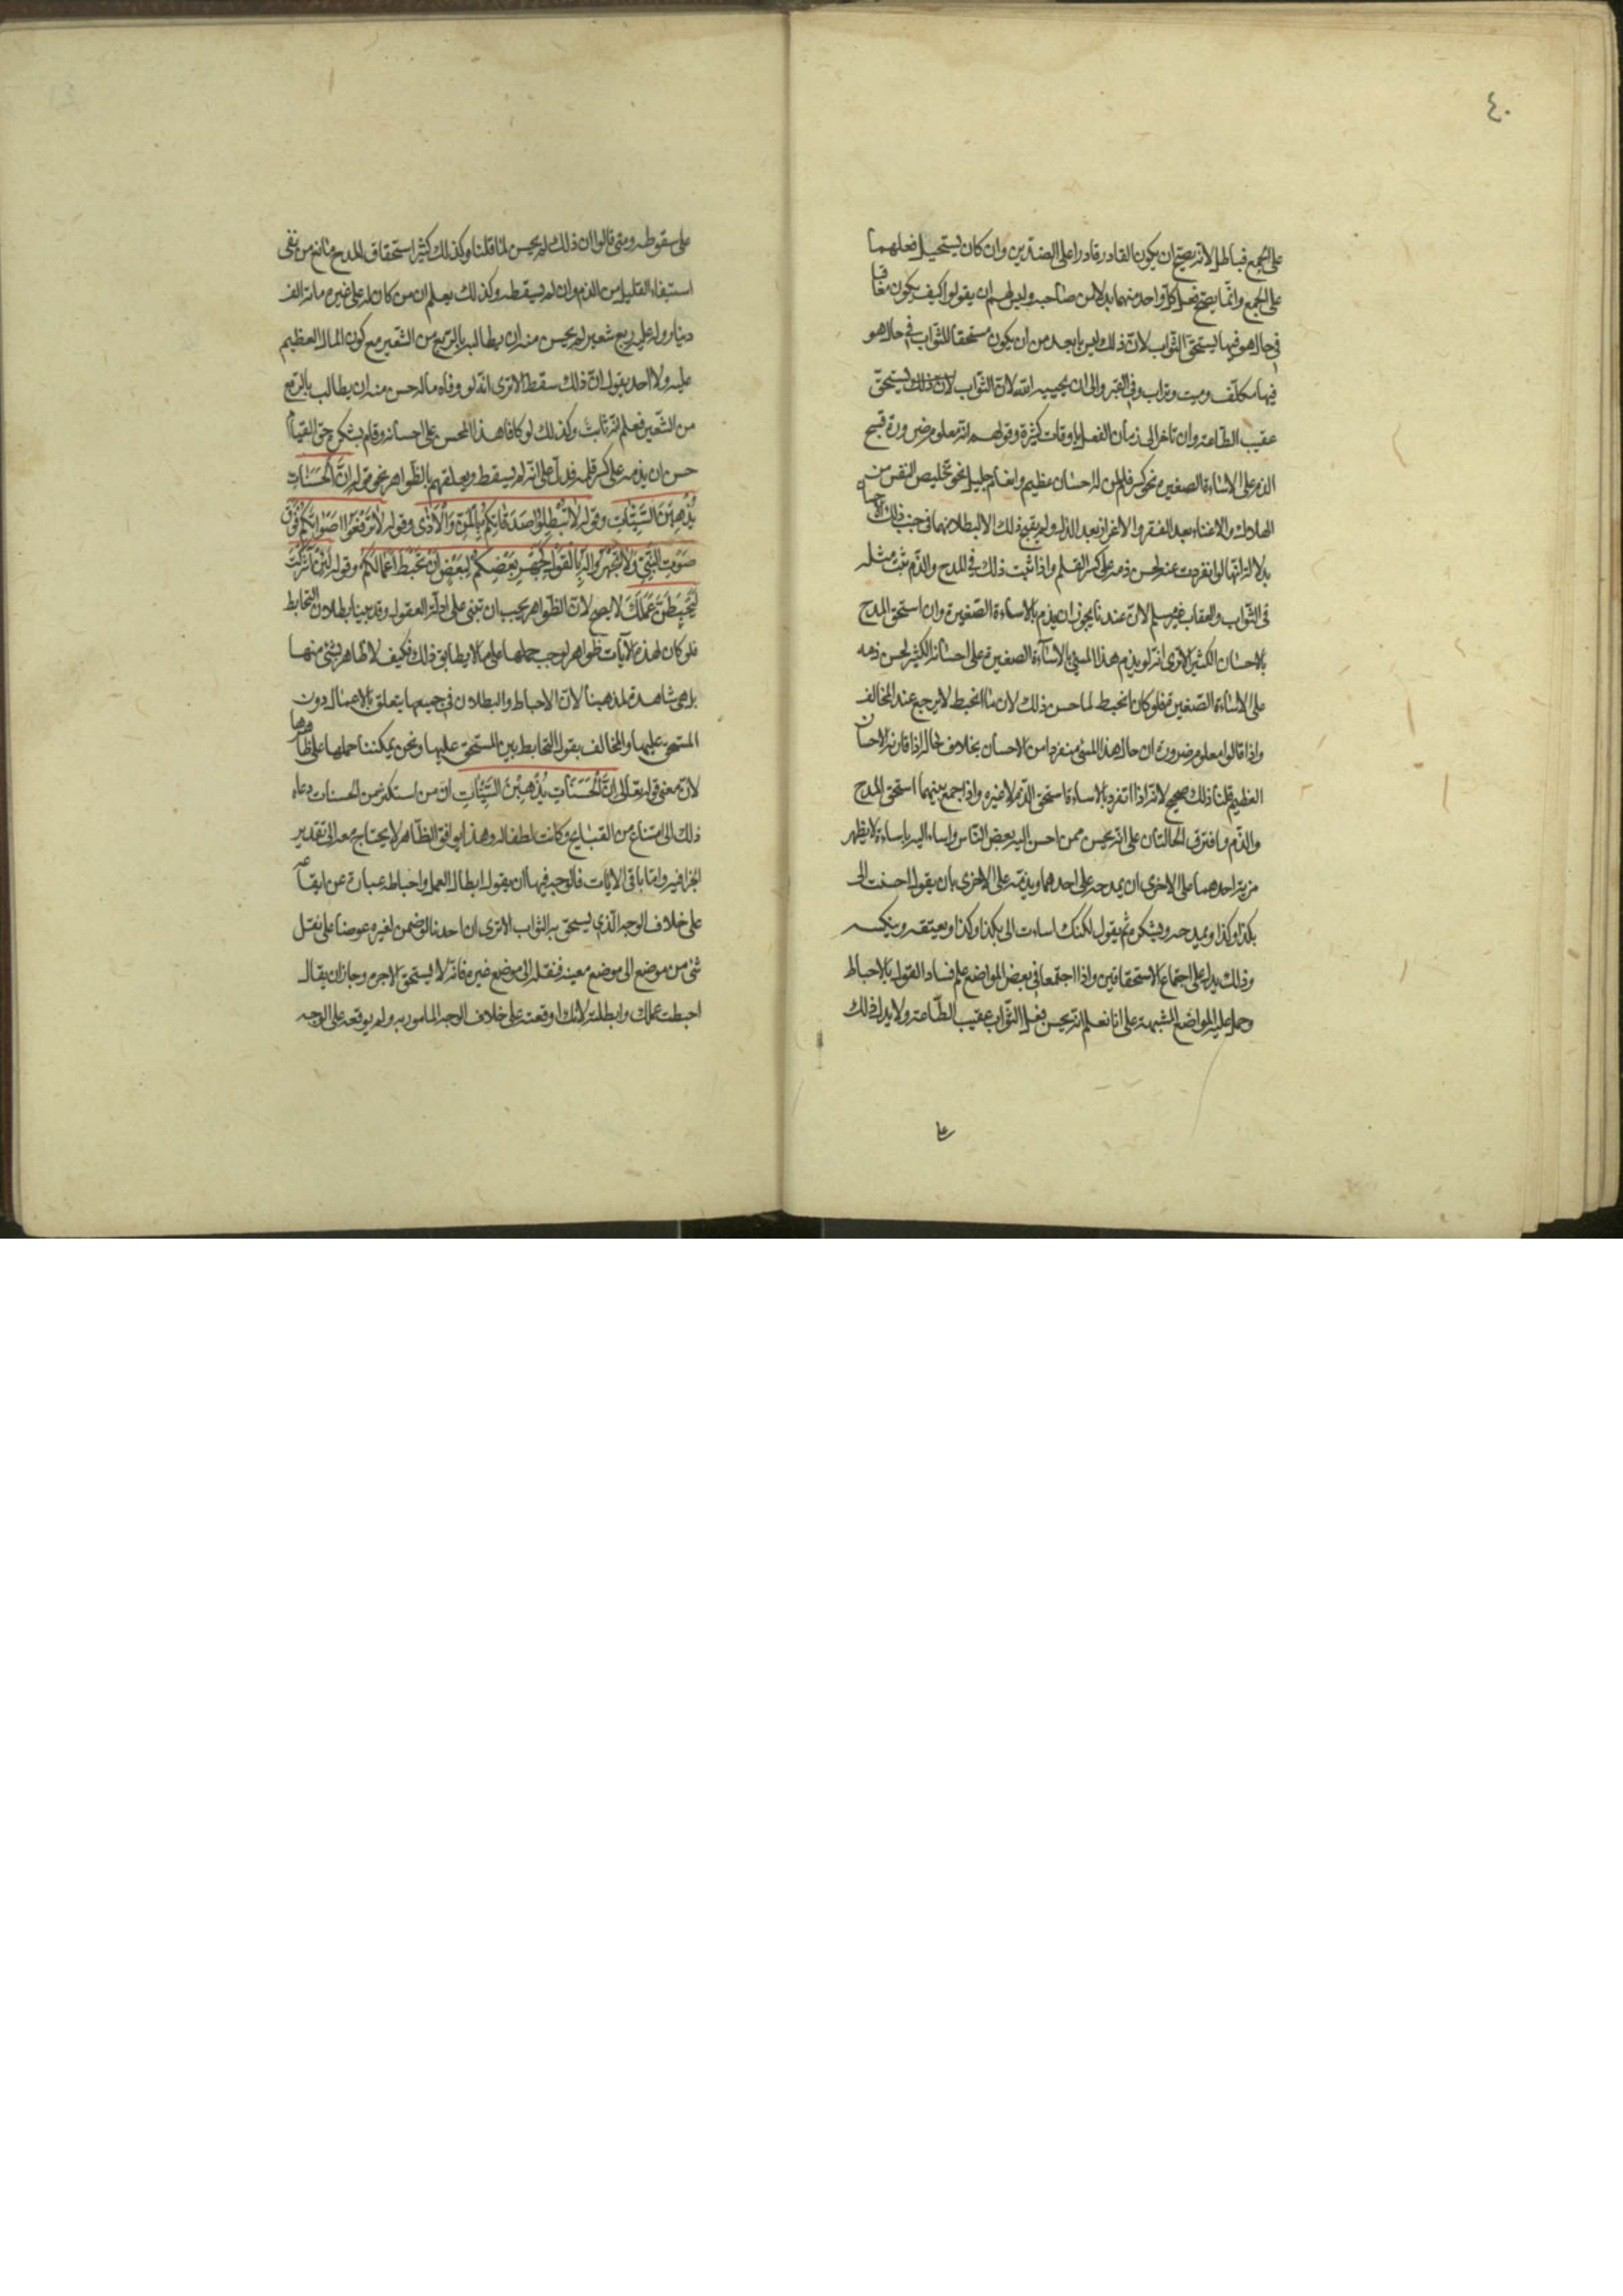 ٤٠
على الجمع فباطل لانه يصح ان يكون القادر قادرا على الضدين وان كان يستحيل فعلهما
على الجمع وانما يصح فعل كل واحد منهما بدلا من صاحبه وليس لهم ان يقولوا كيف يكون معاقبا
في حال هو فيها يستحق الثواب لان ذلك ليس بابعد من ان يكون مستحقا للثواب في حال هو
فيها مكلف وميت وتراب وفي القبر والى ان يحييه الله لان الثواب يستحق
عقيب الطاعة وان تاخر الى زمان الفعل باوقات كثيرة وقولهم انه معلوم ضرورة قبح
الذم على الاساءة الصغيرة نحو كسر قلم لمن له احسان عظيم وانعام جليل نحو تخليص النفس من
الهلاك والاغناء بعد الفقر والاعزاز بعد الذل ولم يقبح ذلك الا لبطلانها في جنب ذلك الاحسان
بدلالة انها لو انفردت عنه لحسن ذمه على كسر القلم واذا ثبت ذلك في المدح والذم ثبت مثله
في الثواب والعقاب غير مسلم لان عندنا يجوز ان يذم بالاساءة الصغيرة وان استحق المدح
بالاحسان الكثير الا ترى انه لو يذم هذا المسئ بالاساءة الصغيرة على احسانه الكثير لحسن ذمه
على الاساءة الصغيرة فلو كان انحبط لما حسن ذلك لان ما انحبط لا يرجع عند المخالف
واذا قالوا معلوم ضرورة ان حال هذا المسئ منفردا من الاحسان بخلاف حاله اذا قارنه الاحسان
العظيم قلنا ذلك صحيح لانه اذا انفرد بالاساءة استحق الذم لا غيره واذا جمع بينهما استحق المدح
والذم وافترق الحالتان على انه يحسن ممن احسن اليه بعض الناس واساء اليه باساءة لا يظهر
مزية احدهما على الاخرى ان يمدحه على احدهما ويذمه على الاخرى بان يقول احسنت الى
بكذا وكذا ويمدحه ويشكره ثم يقول لكنك اسات الى بكذا وكذا ويعنفه ويبكته
وذلك يدل على اجتماع الاستحقاقين واذا اجتمعا في بعض المواضع علم فساد القول بالاحباط
وحمل عليه المواضع المشبهة على انا نعلم انه يحسن فعل الثواب عقيب الطاعة ولا يدل ذلك
على
على سقوطه ومتى قالوا ان ذلك لم يحسن لما قلنا وكذلك كثير استحقاق المدح مانع من نفى
استيفاء القليل من الذم وان لم يسقطه وكذلك يعلم ان من كان له على غيره مائة الف
دينار وله عليه ربع شعير لم يحسن منه ان يطالبه بالربع من الشعير مع كون المال العظيم
عليه ولا احد يقول ان ذلك سقط الا ترى انه لو وفاه ماله حسن منه ان يطالب بالربع
من الشعير فعلم انه ثابت وكذلك لو كافا هذا المحسن على احسانه وقام بشكره حق القيام
حسن ان يذمه على كسر قلمه فدل على انه لم يسقط وتعلقهم بالظواهر نحو قوله ان الحسنات
يذهبن السيئات وقوله لا تبطلوا صدقاتكم بالمن والاذى وقوله لا ترفعوا اصواتكم فوق
صوت النبي ولا تجهروا له بالقول كجهر بعضكم لبعض ان تحبط اعمالكم وقوله لئن اشركت
ليحبطن عملك لا يصح لان الظواهر يجب ان تبنى على ادلة العقول وقد بينا بطلان التحابط
فلو كان لهذه الآيات ظواهر لوجب حملها على ما لا يطابق ذلك فكيف لا ظاهر لشئ منها
بل هي شاهدة لمذهبنا لان الاحباط والبطلان في جميعها يتعلق بالاعمال دون
المستحق عليها والمخالف يقول التحابط بين المستحق عليها ونحن يمكننا حملها على ظاهرها
لان معنى قوله تعالى ان الحسنات يذهبن السيئات ان من استكثر من الحسنات دعاه
ذلك الى امتناع من القبايح وكانت لطفا له وهذا يوافق الظاهر لا يحتاج معه الى تقدير
الجزا فيه واما باقى الايات فالوجه فيها ان يقول ابطال العمل واحباطه عبارة عن ايقاعه
على خلاف الوجه الذي يستحق به الثواب الا ترى ان احدنا لو ضمن لغيره عوضا على نقل
شئ من موضع الى موضع معين فنقله الى موضع غيره فانه لا يستحق الاجر وجاز ان يقال
احبطت عملك وابطلته لانك اوقعته على خلاف الوجه المامور به ولم يوقعه على الوجه